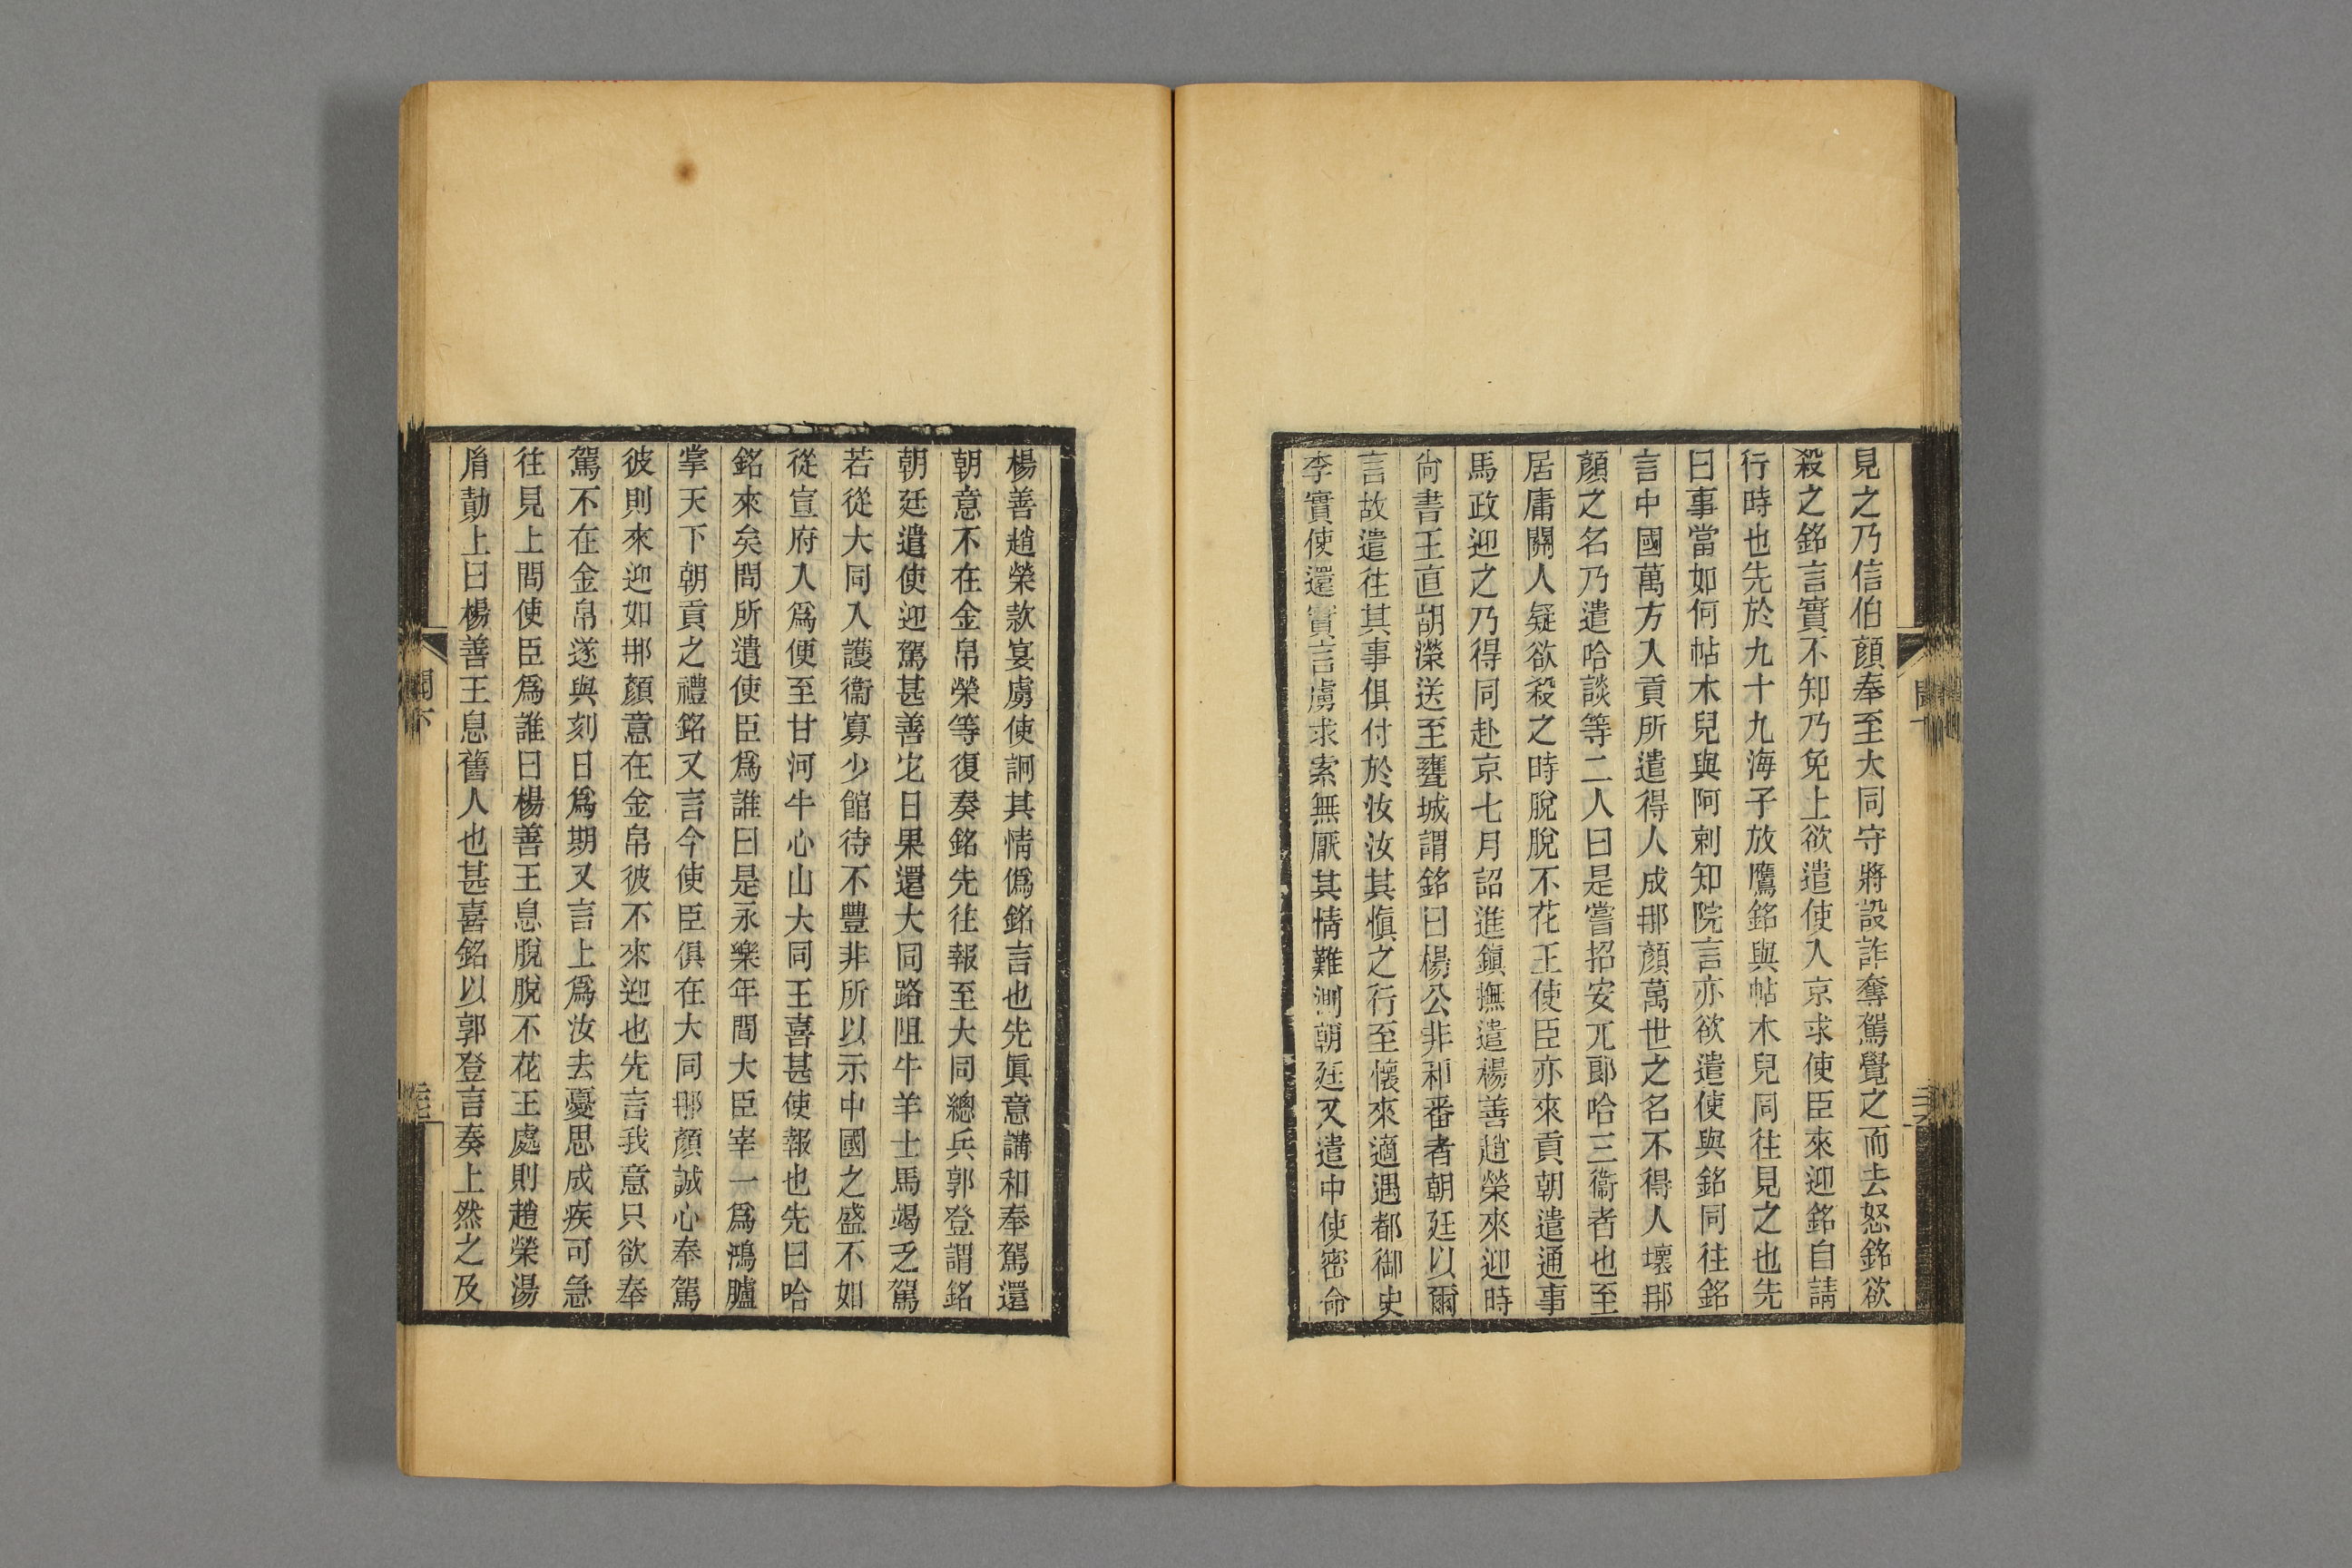 見之乃信伯顏奉至大同守將設詐奪駕覺之而去怒銘欲
殺之銘言實不知乃免上欲遣使入京求使臣來迎銘自請
行時也先於九十九海子放鷹銘與帖木兒同往見之也先
曰事當如何帖木兒與阿剌知院言亦欲遣使與銘同往銘
言中國萬方入貢所遣得人成那顏萬世之名不得人壞那
顏之名乃遣哈談等二人曰是嘗招安兀郎哈三衞者也至
居庸關人疑欲殺之時脫脫不花王使臣亦來貢朝遣通事
馬政迎之乃得同赴京七月詔進鎭撫遣楊善趙榮來迎時
尙書王直胡濙送至甕城謂銘曰楊公非和番者朝廷以爾
言故遣往其事俱付於汝汝其愼之行至懷來適遇都御史
李實使還實言虜求索無厭其情難測朝廷又遣中使密命
楊善趙榮款宴虜使詗其情僞銘言也先眞意講和奉駕還
朝意不在金帛榮等復奏銘先往報至大同總兵郭登謂銘
朝廷遣使迎駕甚善它日果還大同路阻牛羊士馬竭乏駕
若從大同入護衞寡少館待不豐非所以示中國之盛不如
從宣府入爲便至甘河牛心山大同王喜甚使報也先曰哈
銘來矣問所遣使臣爲誰曰是永樂年間大臣宰一爲鴻臚
掌天下朝貢之禮銘又言今使臣俱在大同那顏誠心奉駕
彼則來迎如那顏意在金帛彼不來迎也先言我意只欲奉
駕不在金帛遂與刻日爲期又言上爲汝去憂思成疾可急
往見上問使臣爲誰曰楊善王息脫脫不花王處則趙榮湯
胤勣上曰楊善王息舊人也甚喜銘以郭登言奏上然之及